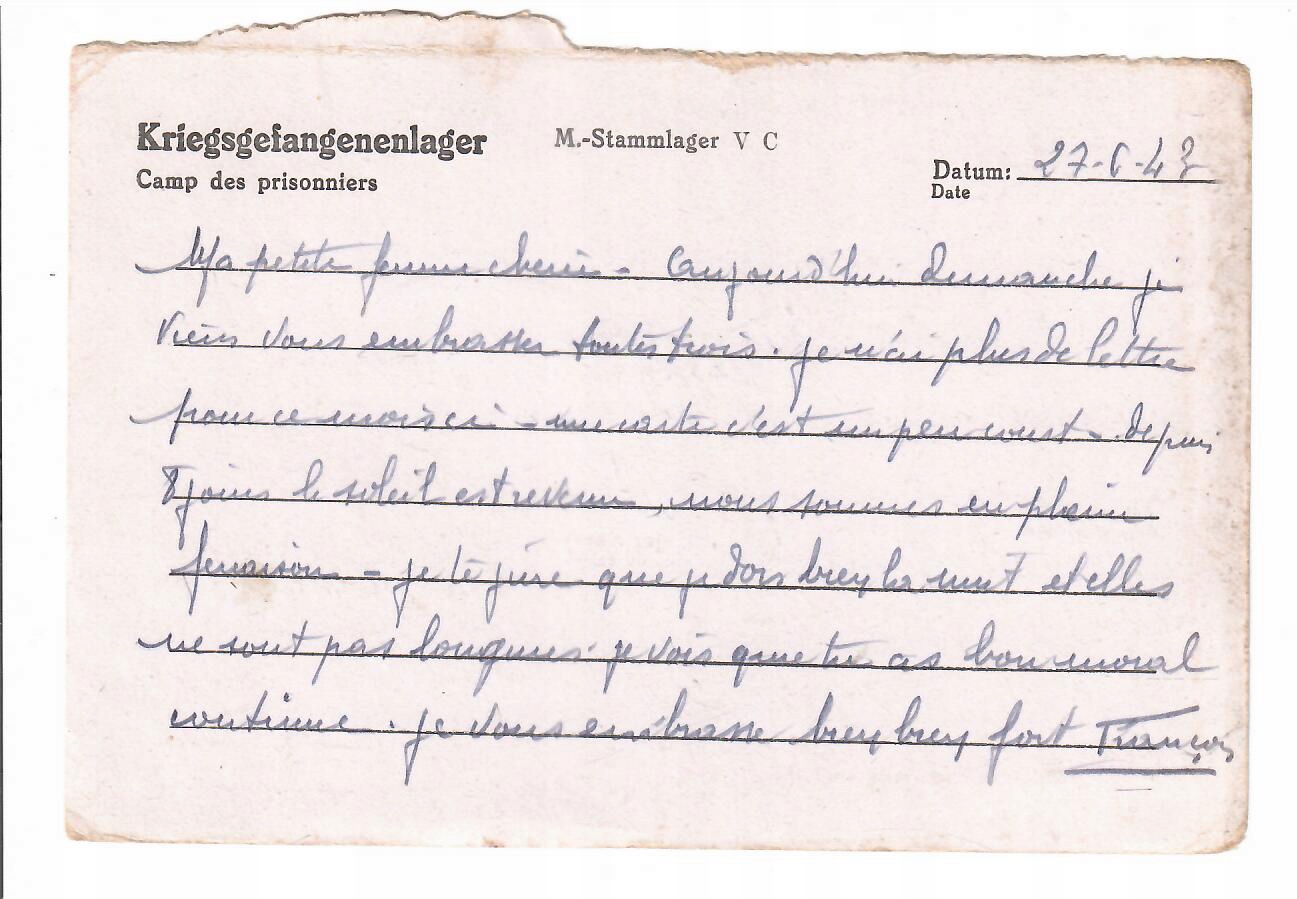 Kriegsgefangenenlager
M.-Stammlager V C
Camp des prisonniers
Datum: 27-6-43
Date
Ma petite femme cherie - aujourd'hui dimanche je
viens vous embrasser toutes trois. je n'ai plus de lettre
pour ce mois ci - une carte c'est un peu court -. depuis
8 jours le soleil est revenu, nous sommes en pleine
fenaison - je te jure que je dors bien la nuit et elles
ne sont pas longues. je vois que tu as bon moral
continue. je vous embrasse bien bien fort François